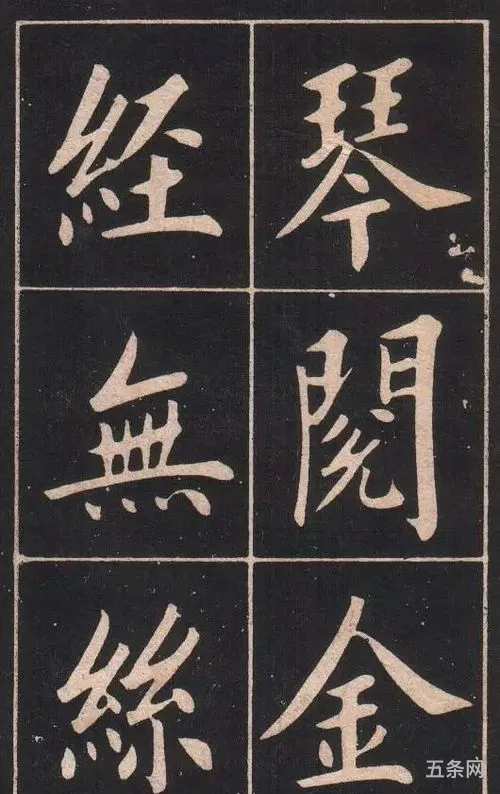 琴閱金
經無絲
五条网